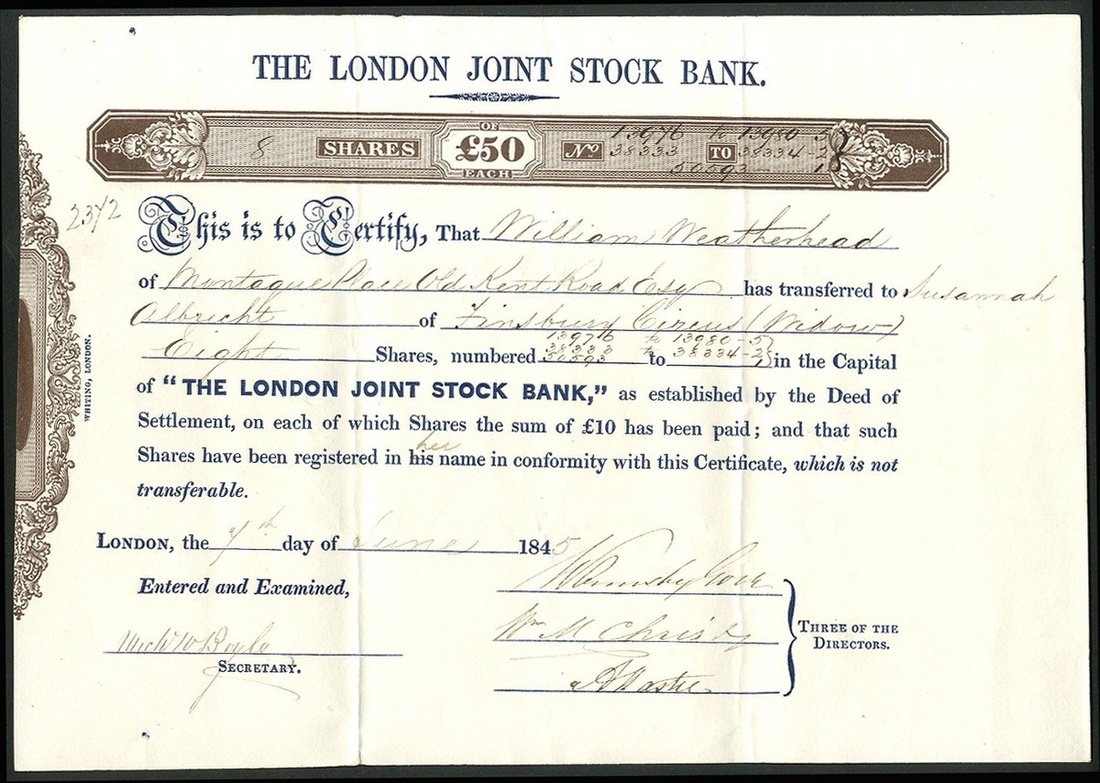 THE LONDON JOINT STOCK BANK.
8 SHARES OF £50 EACH No 13976 to 13980 - 5
38333 TO 38334 - 2
50593 - 1
8
2342
This is to Certify, That William Weatherhead
of Montague Place Old Kent Road Esq has transferred to Susannah
Albrecht of Finsbury Circus (Widow)
13976 to 13980 - 5
Eight Shares, numbered 38333 to 38334 - 2 in the Capital
50593 1
of "THE LONDON JOINT STOCK BANK," as established by the Deed of
Settlement, on each of which Shares the sum of £10 has been paid; and that such
her
Shares have been registered in his name in conformity with this Certificate, which is not
transferable.
WHITING, LONDON.
LONDON, the 7th day of June 1845
Entered and Examined,
SECRETARY.
Wm
THREE OF THE
DIRECTORS.